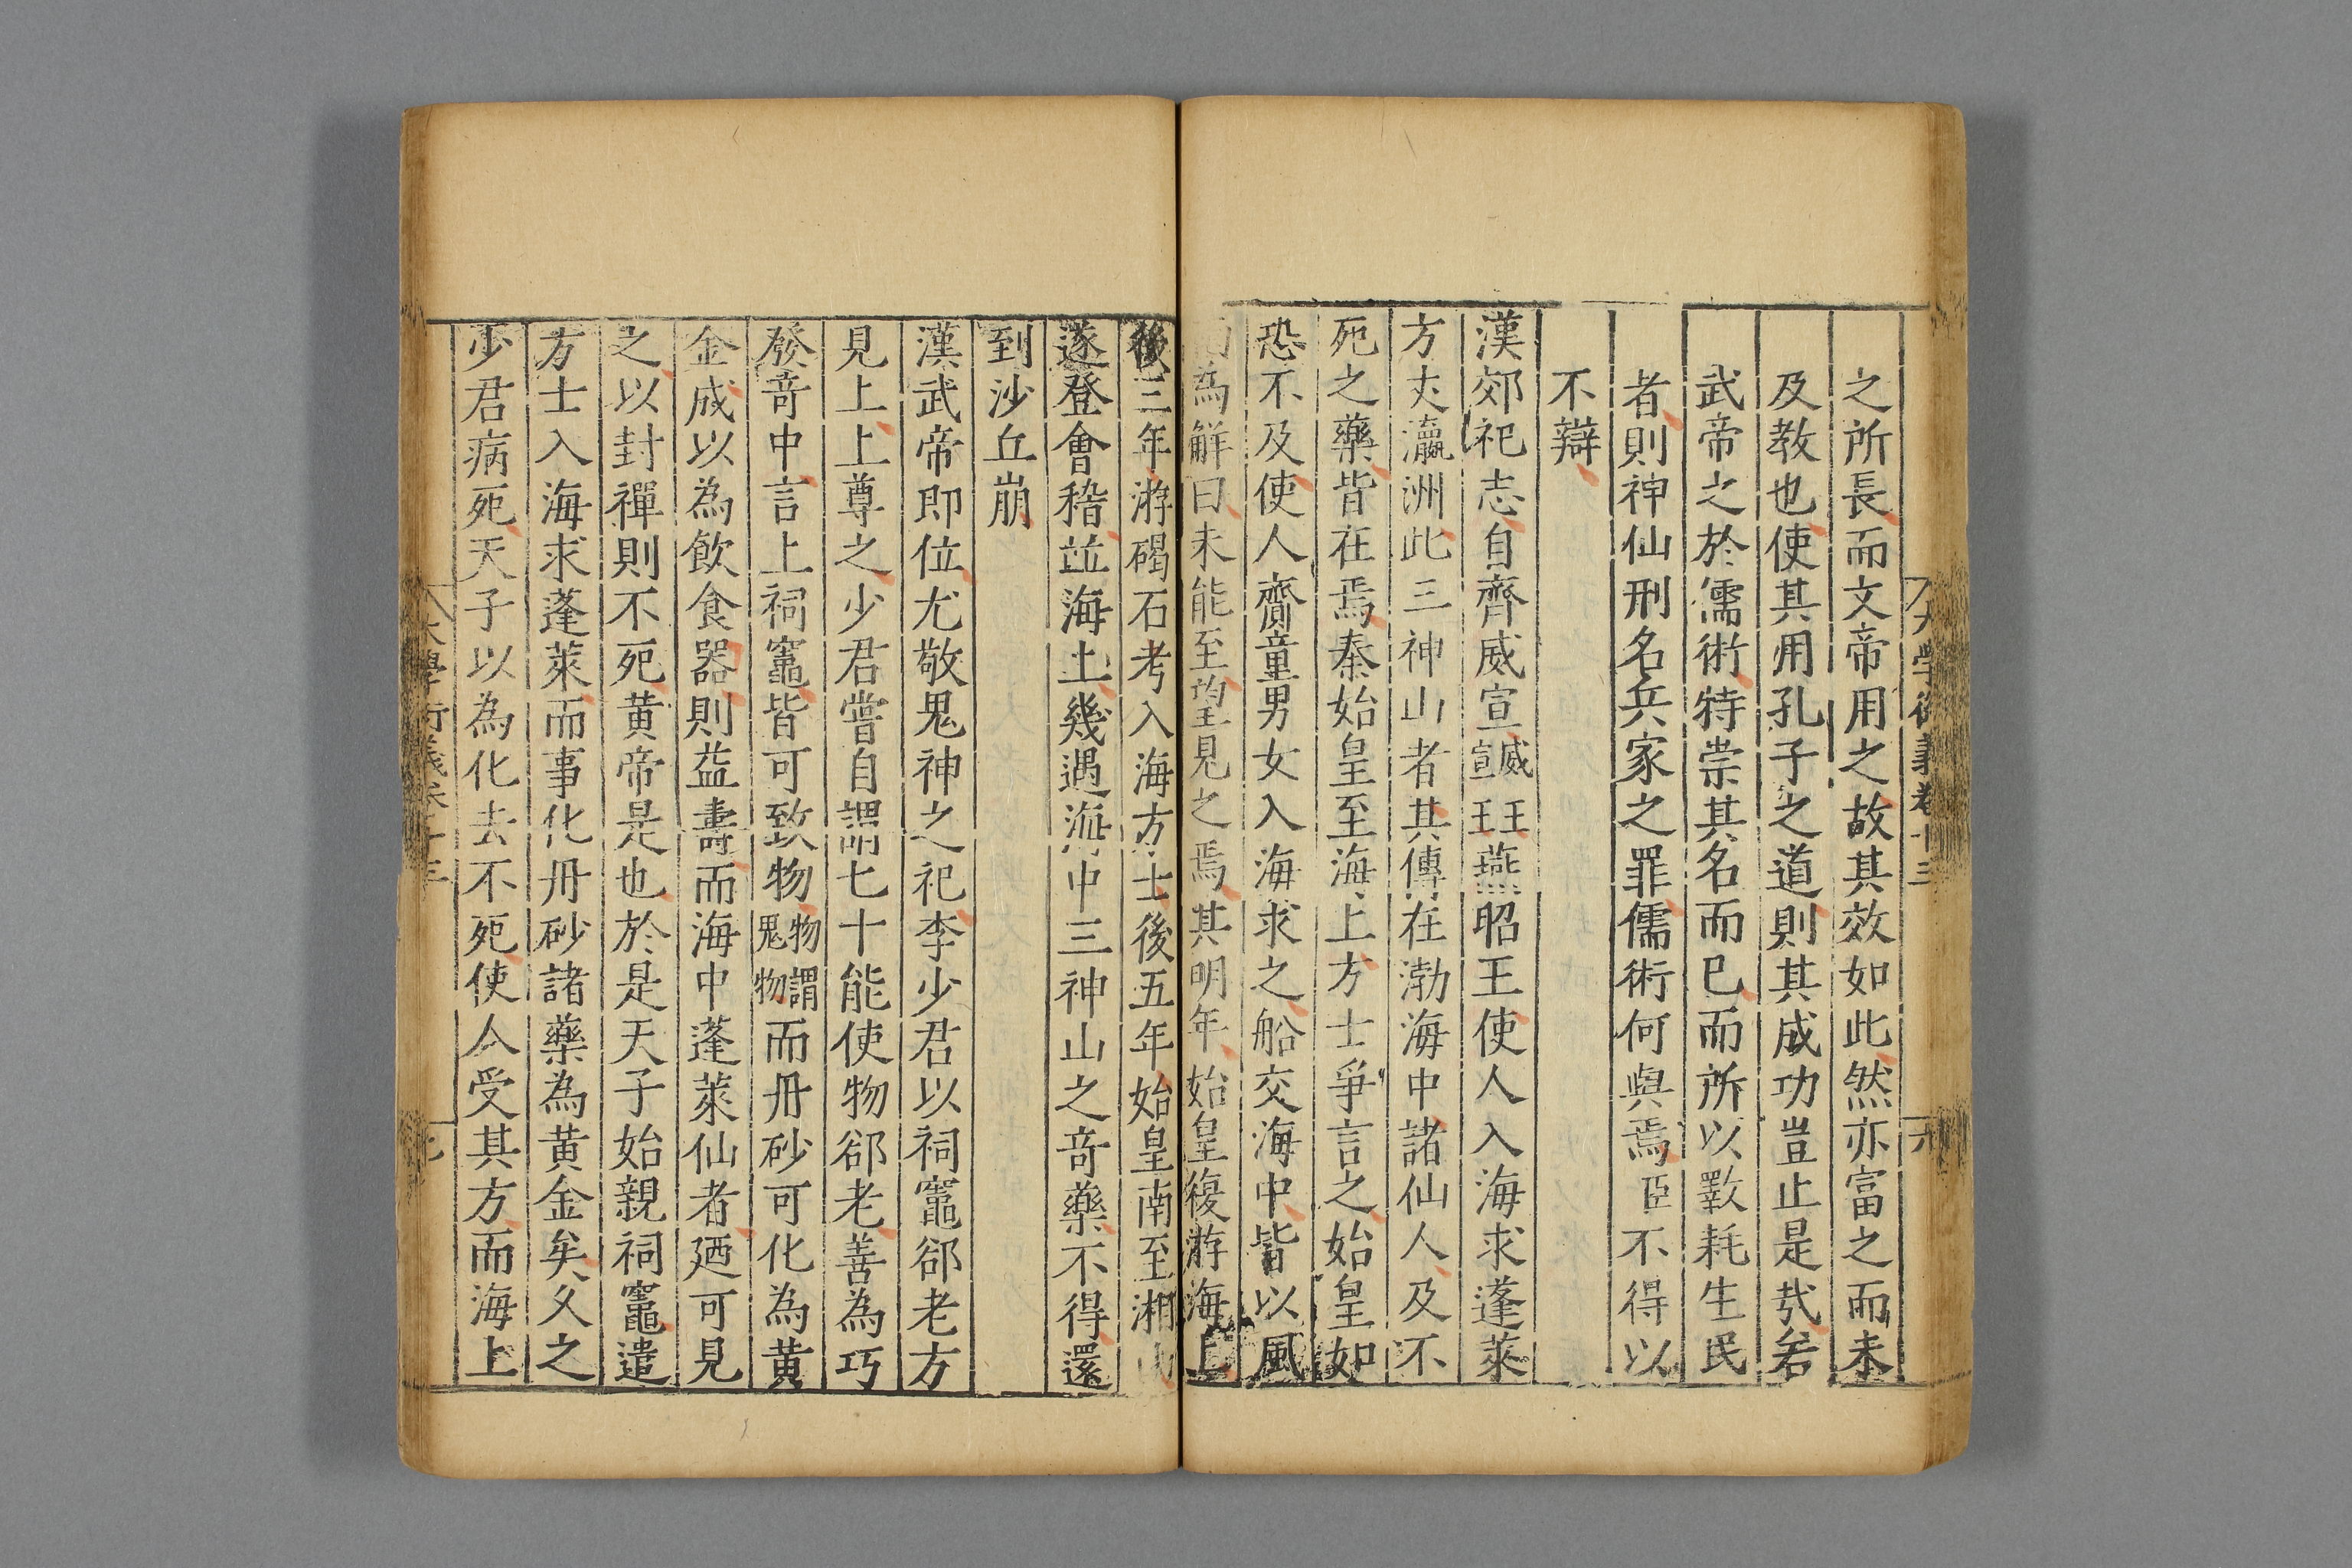 大學衍義卷十三
六
之所長而文帝用之故其效如此然亦富之而未
及教也使其用孔子之道則其成功豈止是㢤若
武帝之於儒術特崇其名而已而所以斁耗生民
者則神仙刑名兵家之罪儒術何與焉臣不得以
不辯
漢郊祀志自齊威宣威王宣王燕昭王使人入海求蓬萊
方丈瀛洲此三神山者其傳在渤海中諸仙人及不
死之藥皆在焉秦始皇至海上方士爭言之始皇如
恐不及使人齎童男女入海求之船交海中皆以風
為觧曰未能至望見之焉其明年始皇復游海上
後三年游碣石考入海方士後五年始皇南至湘山
遂登會稽並海上幾遇海中三神山之奇藥不得還
到沙丘崩
漢武帝即位尤敬鬼神之祀李少君以祠竈郤老方
見上上尊之少君嘗自謂七十能使物郤老善為巧
發竒中言上祠竈皆可致物物謂鬼物而丹砂可化為黃
金成以為飲食器則益壽而海中蓬萊仙者廼可見
之以封禪則不死黃帝是也於是天子始親祠竈遣
方士入海求蓬萊而事化丹砂諸藥為黃金矣久之
少君病死天子以為化去不死使人受其方而海上
大學衍義卷十三